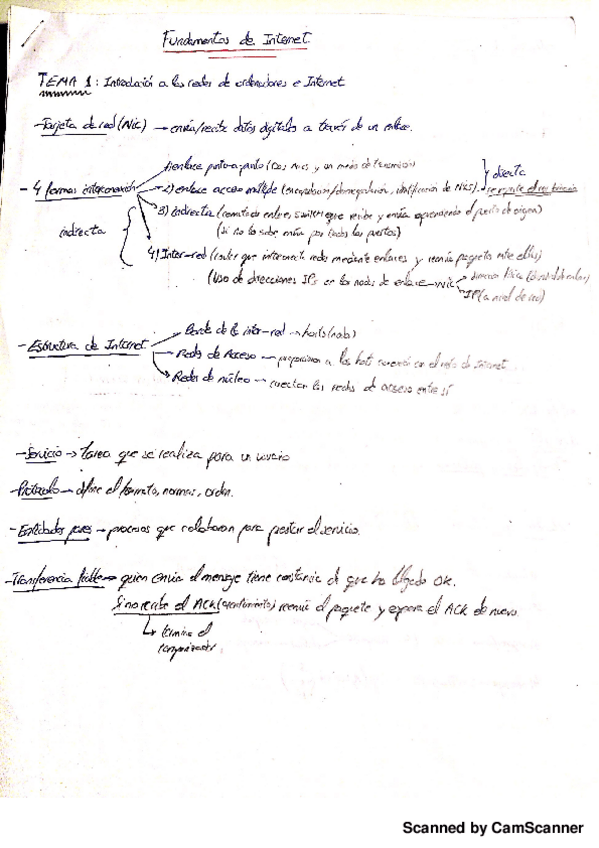 Fundamentos de Internet
TEMA 1: Introducción a las redes de ordenadores e Internet
- Tarjeta de red (NIC) → envía/recibe datos digitales a través de un enlace.
1) enlace punto a punto (Dos NICs y un medio de transmisión)
directa
- 4 formas interconexión
2) enlace acceso múltiple (encapsulación/desencapsulación, identificación de NICs).
indirecta
3) indirecta (conmutador enlaces, switch que recibe y envía aprendiendo el puerto de origen)
(si no lo sabe envía por todos los puertos)
4) Inter-red (router que interconecta redes mediante enlaces y reenvía paquetes entre ellas)
(Uso de direcciones IPs en los nodos de enlace → NIC
dirección física
IP (a nivel de red)
- Estructura de Internet
Borde de la inter-red → hosts (nodos)
Redes de Acceso → proporcionan a los hosts conexión con el resto de Internet
Redes de núcleo → conectan las redes de acceso entre sí
- Servicio → tarea que se realiza para un usuario
- Protocolo → define el formato, normas, orden.
- Entidades pares → procesos que colaboran para prestar el servicio.
- Transferencia fiable → quien envía el mensaje tiene constancia de que ha llegado OK.
Si no recibe el ACK (asentimiento) reenvía el paquete y espera el ACK de nuevo
termina el
temporizador
Scanned by CamScanner